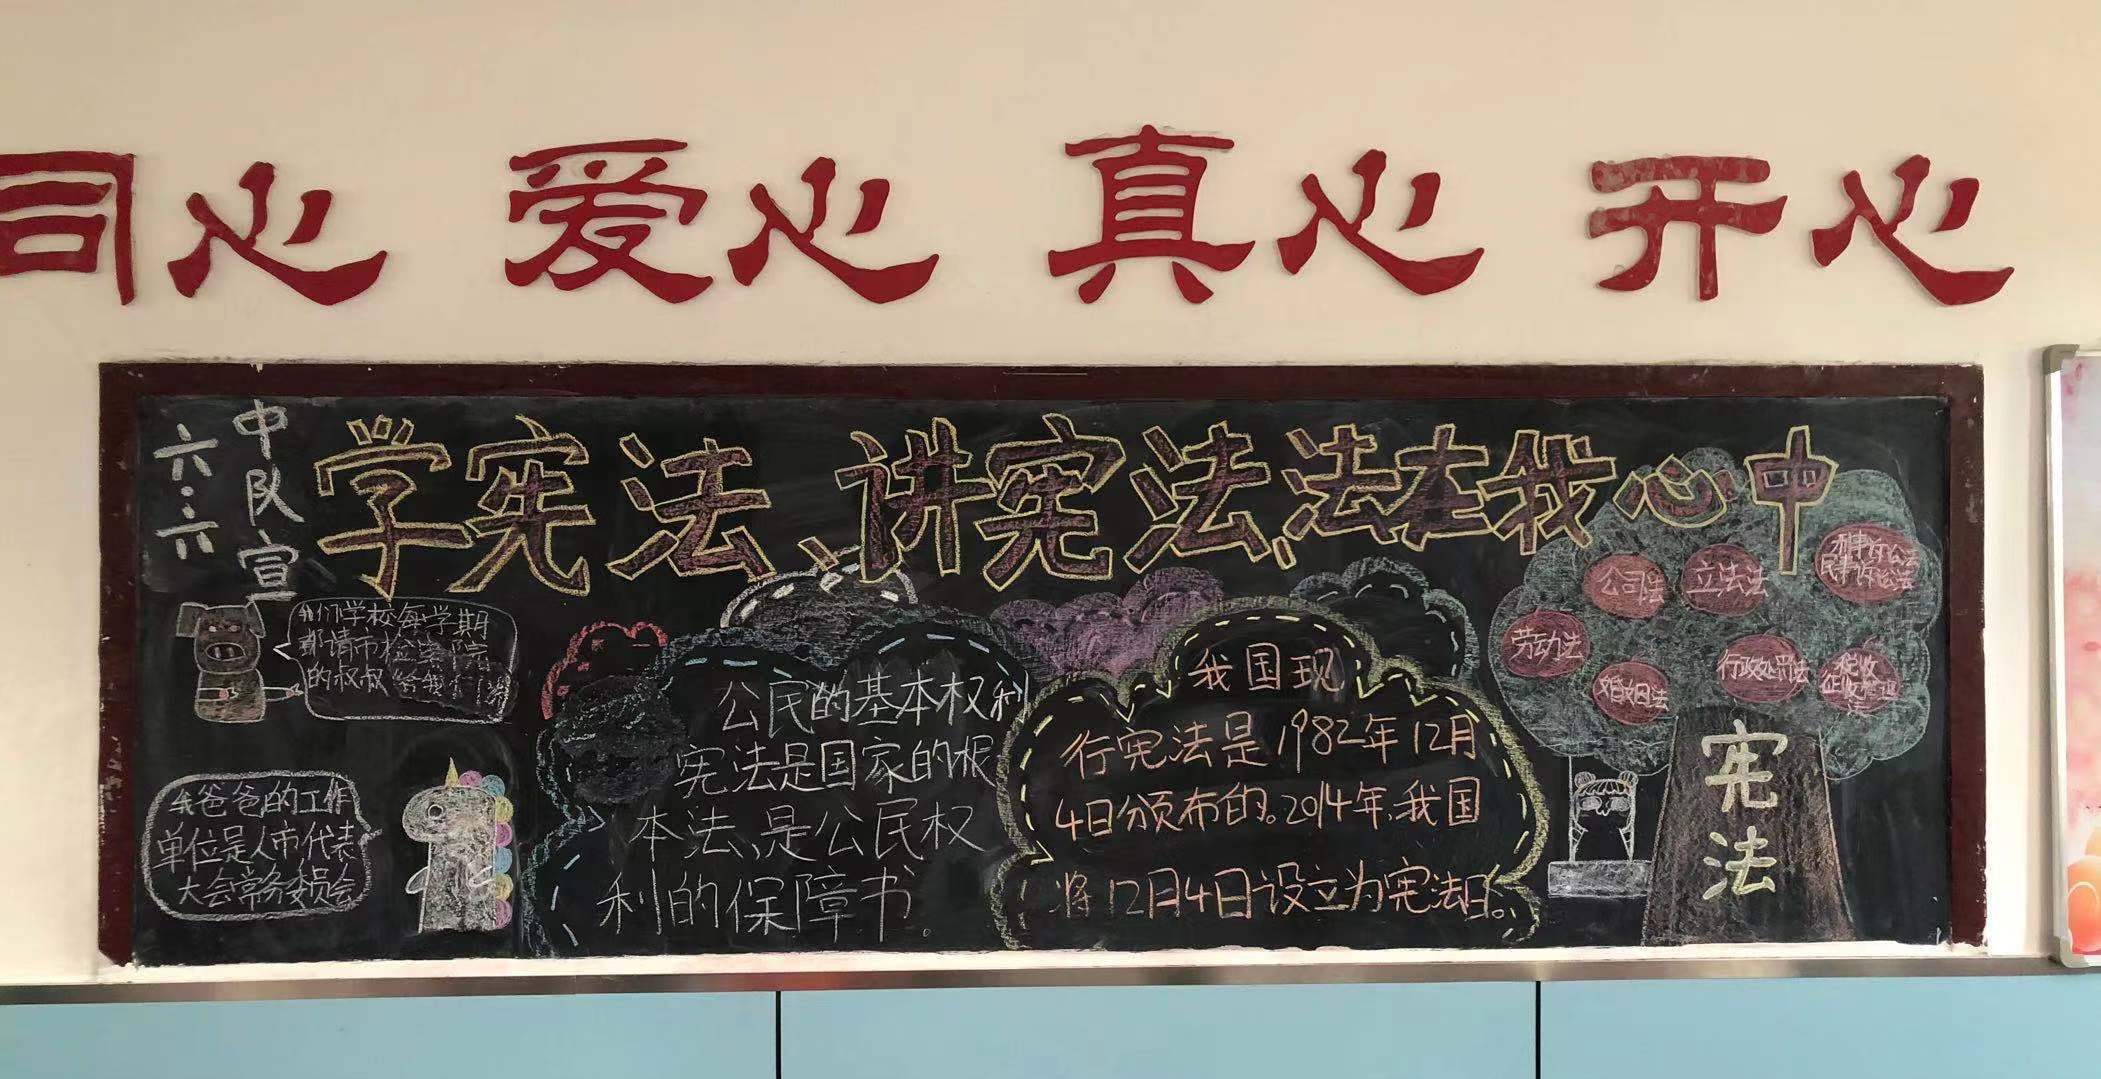 同心 爱心 真心 开心
六.六
中队宣
学宪法、讲宪法,法在我心中
我们学校每学期
都请市检察院
的叔叔给我们
我爸爸的工作
单位是人市代表
大会常务委员会
公民的基本权利
宪法是国家的根
本法、是公民权
利的保障书。
我国现
行宪法是1982年12月
4日颁布的。2014年,我国
将12月4日设立为宪法日。
公司法
立法法
民事诉讼法
劳动法
婚姻法
行政处罚法
税收
征收管理
法
宪法